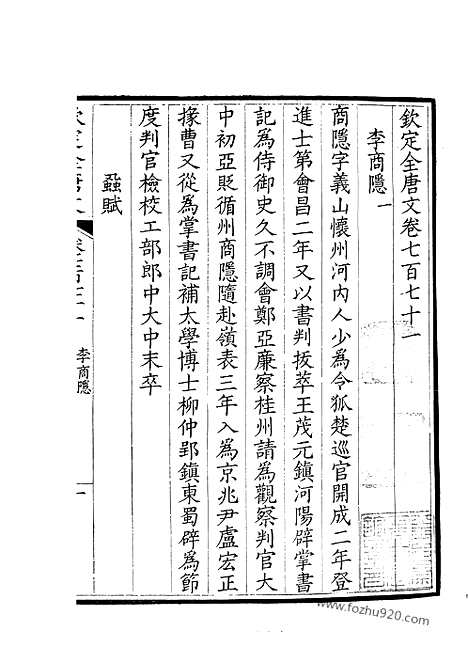 欽定全唐文卷七百七十一
李商隱一
商隱字義山懷州河內人少為令狐楚巡官開成二年登
進士第會昌二年又以書判拔萃王茂元鎮河陽辟掌書
記為侍御史久不調會鄭亞廉察桂州請為觀察判官大
中初亞貶循州商隱隨赴嶺表三年入為京兆尹盧宏正
掾曹又從為掌書記補太學博士柳仲郢鎮東蜀辟為節
度判官檢校工部郎中大中末卒
蝨賦
李商隱
一
www.fozhu920.com